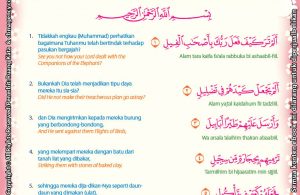 بِسْمِ اللَّهِ الرَّحْمَٰنِ الرَّحِيمِ
1. Tidakkah engkau (Muhammad) perhatikan
bagaimana Tuhanmu telah bertindak terhadap
pasukan bergajah?
See you not how your Lord dealt with the
Companions of the Elephant?
أَلَمْ تَرَ كَيْفَ فَعَلَ رَبُّكَ بِأَصْحَابِ الْفِيلِ
Alam tara kaifa fa'ala rabbuka bi ashaabil-fiil.
2. Bukankah Dia telah menjadikan tipu daya
mereka itu sia-sia?
Did He not make their treacherous plan go astray?
أَلَمْ يَجْعَلْ كَيْدَهُمْ فِي تَضْلِيلٍ
Alam yaj'al kaidahum fii tadzliil.
3. dan Dia mengirimkan kepada mereka burung
yang berbondong-bondong,
And He sent against them Flights of Birds,
وَأَرْسَلَ عَلَيْهِمْ طَيْرًا أَبَابِيلَ
Wa arsala 'alaihim thairan abaabil.
4. yang melempari mereka dengan batu dari
tanah liat yang dibakar,
Striking them with stones of baked clay.
تَرْمِيهِمْ بِحِجَارَةٍ مِنْ سِجِّيلٍ
Tarmiihim bi hijaaratim min sijjiil.
5. sehingga mereka dijadikan-Nya seperti daun-
daun yang dimakan (ulat).